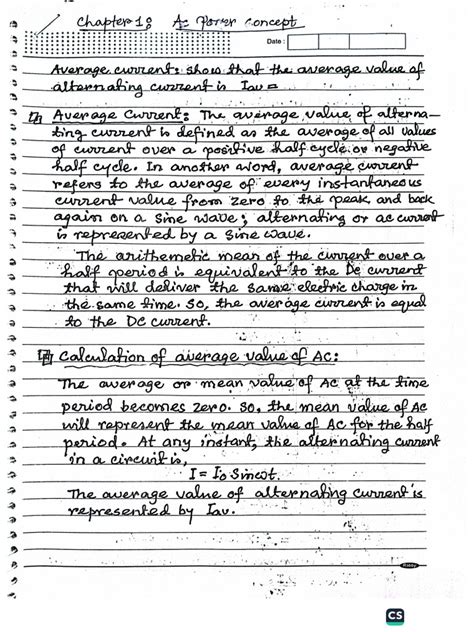 Chapter 1: Ac Power Concept
Date:
Average current: show that the average value of
alternating current is Iav =
Average Current: The average value of alterna-
ting current is defined as the average of all values
of current over a positive half cycle or negative
half cycle. In another word, average current
refers to the average of every instantaneous
current value from zero to the peak and back
again on a sine wave; alternating or ac current
is represented by a sine wave.
The arithemetic mean of the current over a
half period is equivalent to the DC current
that will deliver the same electric charge in
the same time. So, the average current is equal
to the DC current.
Calculation of average value of AC:
The average or mean value of AC at the time
period becomes zero. So, the mean value of AC
will represent the mean value of AC for the half
period. At any instant, the alternating current
in a circuit is,
I = I₀ Sinωt.
The average value of alternating current is
represented by Iav.
CS